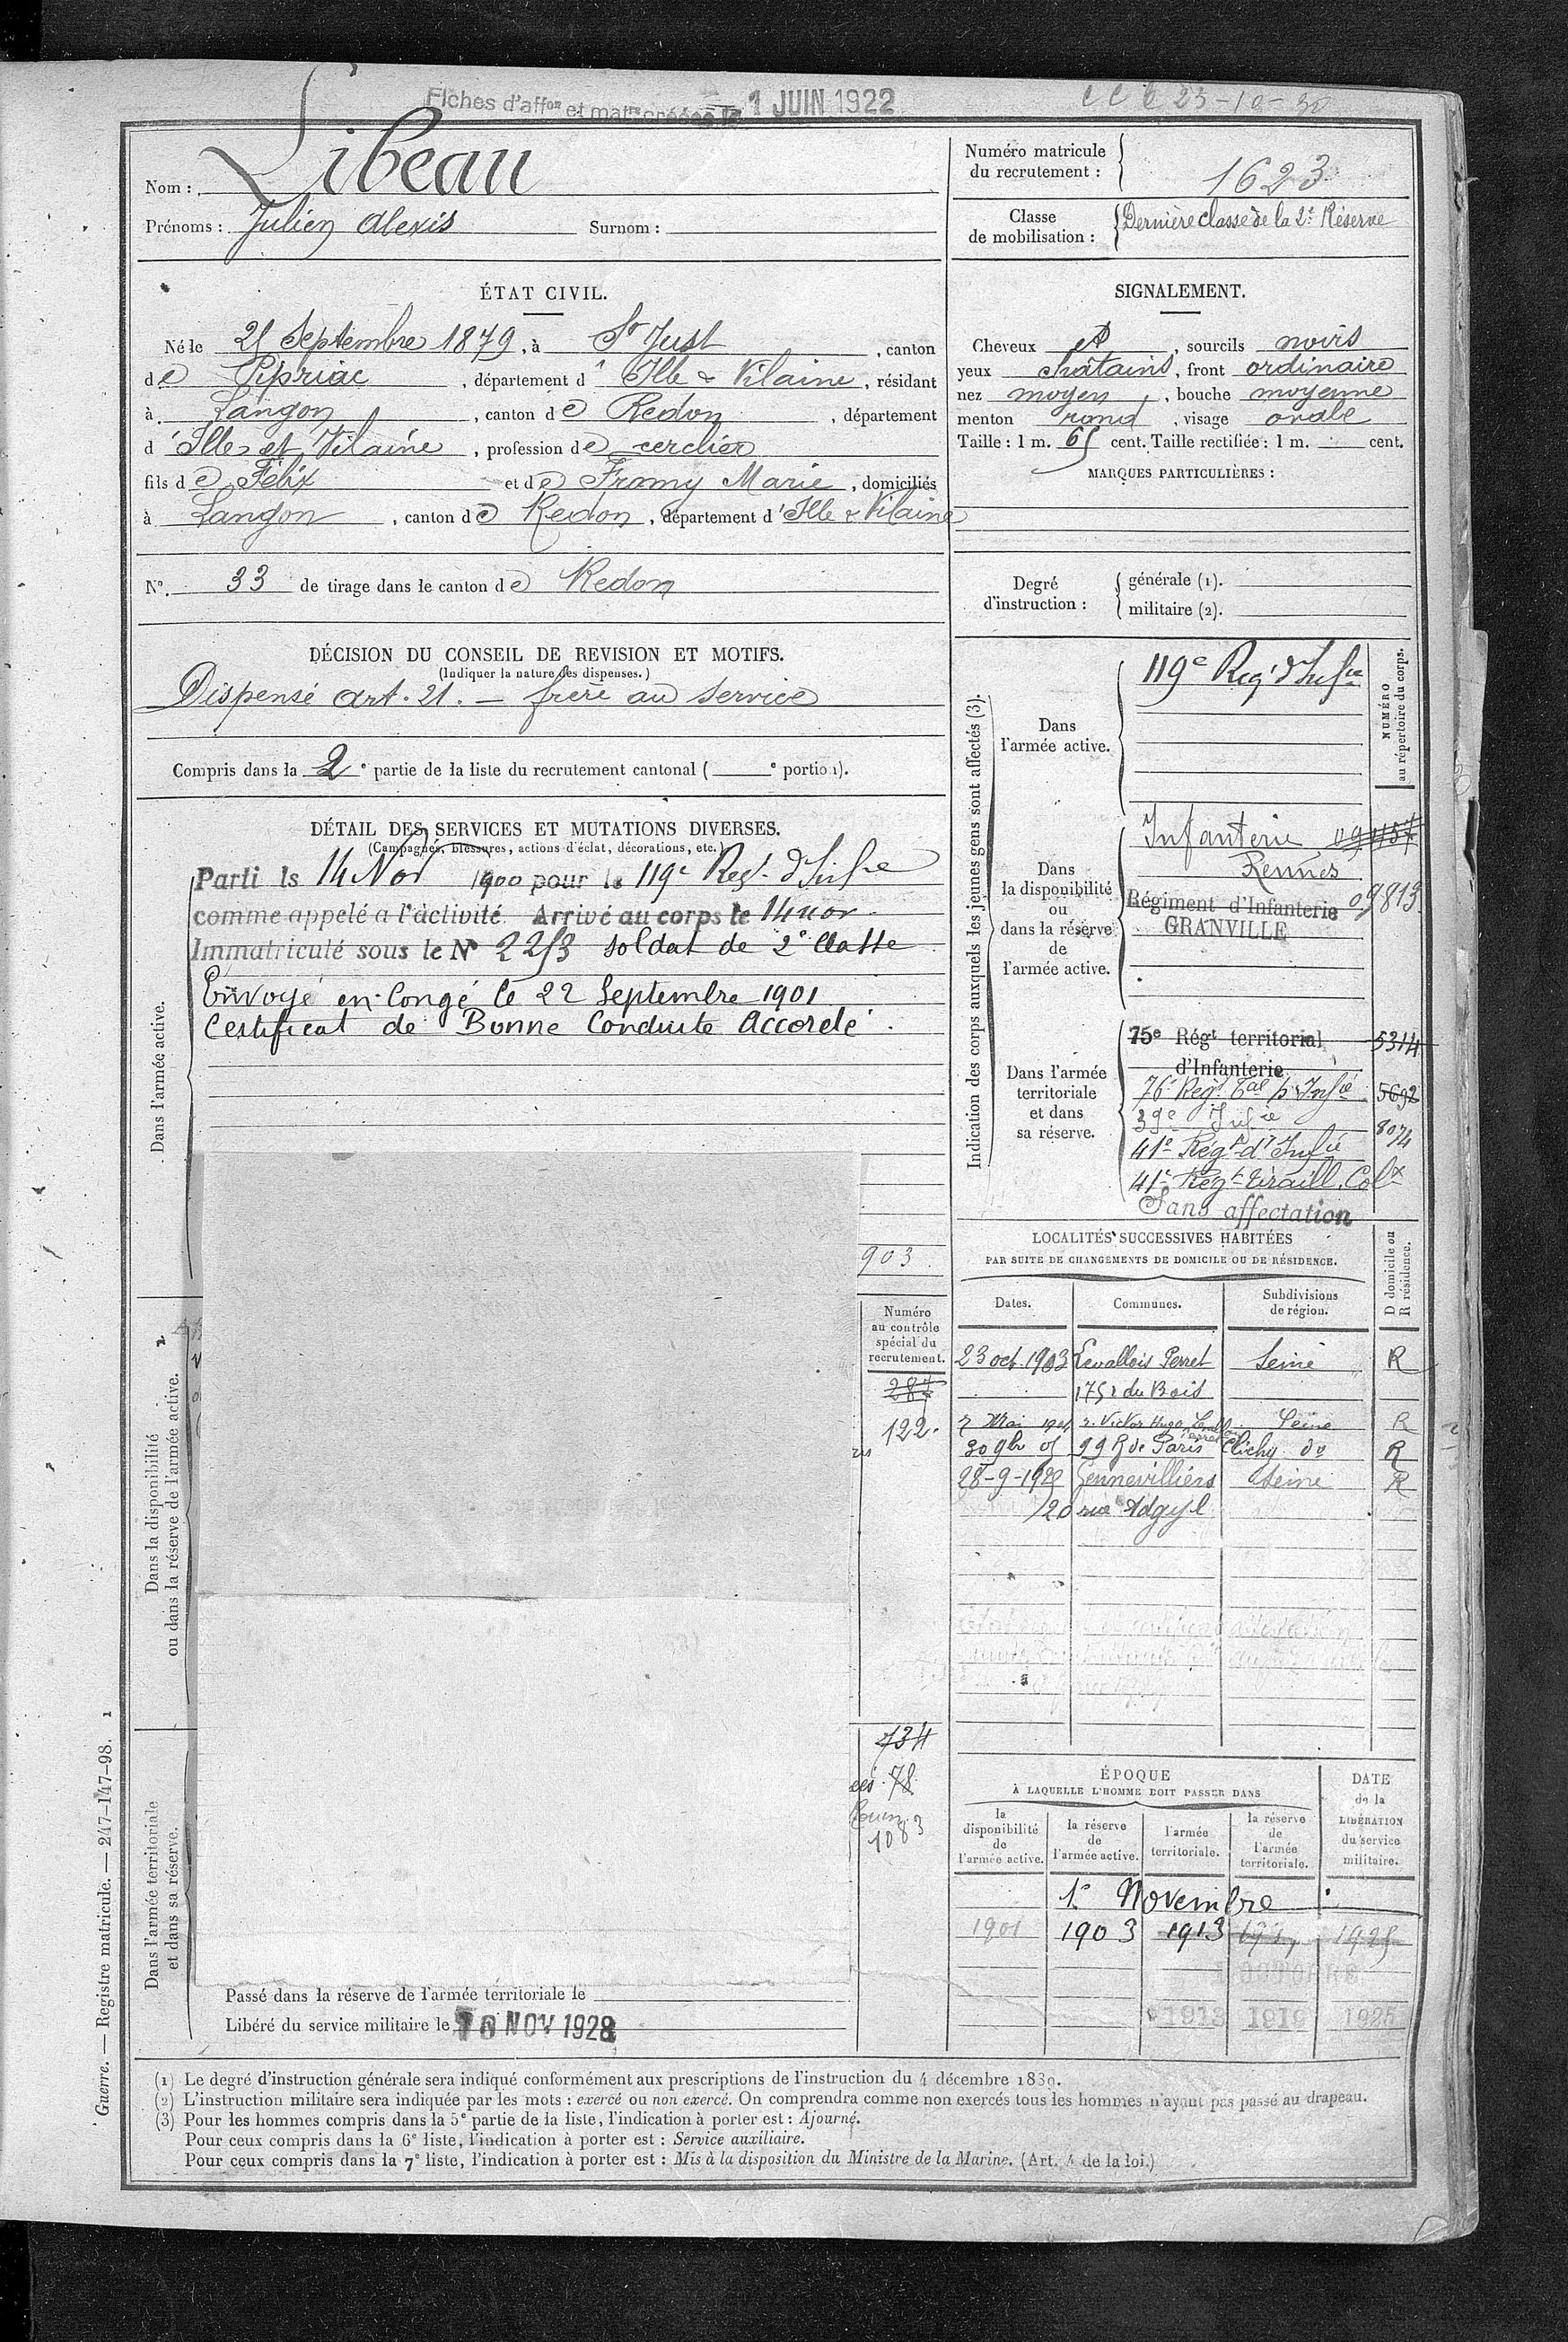 Fiches d'affon et matre créées le 1 JUIN 1922
Nom : Libeau
Prénoms : Julien Alexis Surnom :
Numéro matricule du recrutement : 1623
Classe de mobilisation : Dernière classe de la 2e Réserve
ÉTAT CIVIL.
Né le 25 Septembre 1879, à St Just, canton
de Pipriac, département d'Ille & Vilaine, résidant
à Langon, canton de Redon, département
d'Ille et Vilaine, profession de cerclier
fils de Félix et de Fromy Marie, domiciliés
à Langon, canton de Redon, département d'Ille & Vilaine
No. 33 de tirage dans le canton de Redon
SIGNALEMENT.
Cheveux et, sourcils noirs
yeux chatains, front ordinaire
nez moyen, bouche moyenne
menton rond, visage ovale
Taille : 1 m. 65 cent. Taille rectifiée : 1 m. cent.
MARQUES PARTICULIÈRES :
Degré d'instruction :
générale (1).
militaire (2).
DÉCISION DU CONSEIL DE REVISION ET MOTIFS.
(Indiquer la nature des dispenses.)
Dispensé art. 21. — frère au service
Compris dans la 2e partie de la liste du recrutement cantonal ( e portion).
DÉTAIL DES SERVICES ET MUTATIONS DIVERSES.
(Campagnes, blessures, actions d'éclat, décorations, etc.)
Dans l'armée active.
Parti le 14 Nov 1900 pour le 119e Regt d'Infie
comme appelé a l'activité Arrivé au corps le 14 nov.
Immatriculé sous le No 2253 soldat de 2e Classe
Envoyé en Congé le 22 Septembre 1901
Certificat de Bonne Conduite Accordé.
903
Dans la disponibilité ou dans la réserve de l'armée active.
Numéro au contrôle spécial du recrutement.
287
122.
Dans l'armée territoriale et dans sa réserve.
734
78
1083
Passé dans la réserve de l'armée territoriale le
Libéré du service militaire le 10 NOV 1928
Indication des corps auxquels les jeunes gens sont affectés (3).
NUMÉRO au répertoire du corps.
Dans l'armée active.
119e Regt d'Infie
Dans la disponibilité ou dans la réserve de l'armée active.
Infanterie
Rennes
Régiment d'Infanterie 09813
GRANVILLE
Dans l'armée territoriale et dans sa réserve.
75e Régt territorial d'Infanterie 5314
76e Régt Tal d'Infie 5692
39e Infie 8074
41e Régt d'Infie
41e Regt Tiraill. Colx
Sans affectation
LOCALITÉS SUCCESSIVES HABITÉES
PAR SUITE DE CHANGEMENTS DE DOMICILE OU DE RÉSIDENCE.
Dates. Communes. Subdivisions de région. D domicile ou R résidence.
23 oct. 1903 Levallois Perret Seine R
175 r du Bois
7 Mai r. Victor Hugo Levallois Perret Seine R
30 9bre 05 99 R de Paris Clichy do R
28-9-1922 Gennevilliers Seine R
ÉPOQUE
À LAQUELLE L'HOMME DOIT PASSER DANS
la disponibilité de l'armée active. la réserve de l'armée active. l'armée territoriale. la réserve de l'armée territoriale. DATE de la LIBÉRATION du service militaire.
1er Novembre
1901 1903 1913 1925
1 OCTOBRE
1913 1919 1925
(1) Le degré d'instruction générale sera indiqué conformément aux prescriptions de l'instruction du 4 décembre 1889.
(2) L'instruction militaire sera indiquée par les mots : exercé ou non exercé. On comprendra comme non exercés tous les hommes n'ayant pas passé au drapeau.
(3) Pour les hommes compris dans la 5e partie de la liste, l'indication à porter est : Ajourné.
Pour ceux compris dans la 6e liste, l'indication à porter est : Service auxiliaire.
Pour ceux compris dans la 7e liste, l'indication à porter est : Mis à la disposition du Ministre de la Marine. (Art. 4 de la loi.)
Guerre. — Registre matricule. — 247-147-98. 1